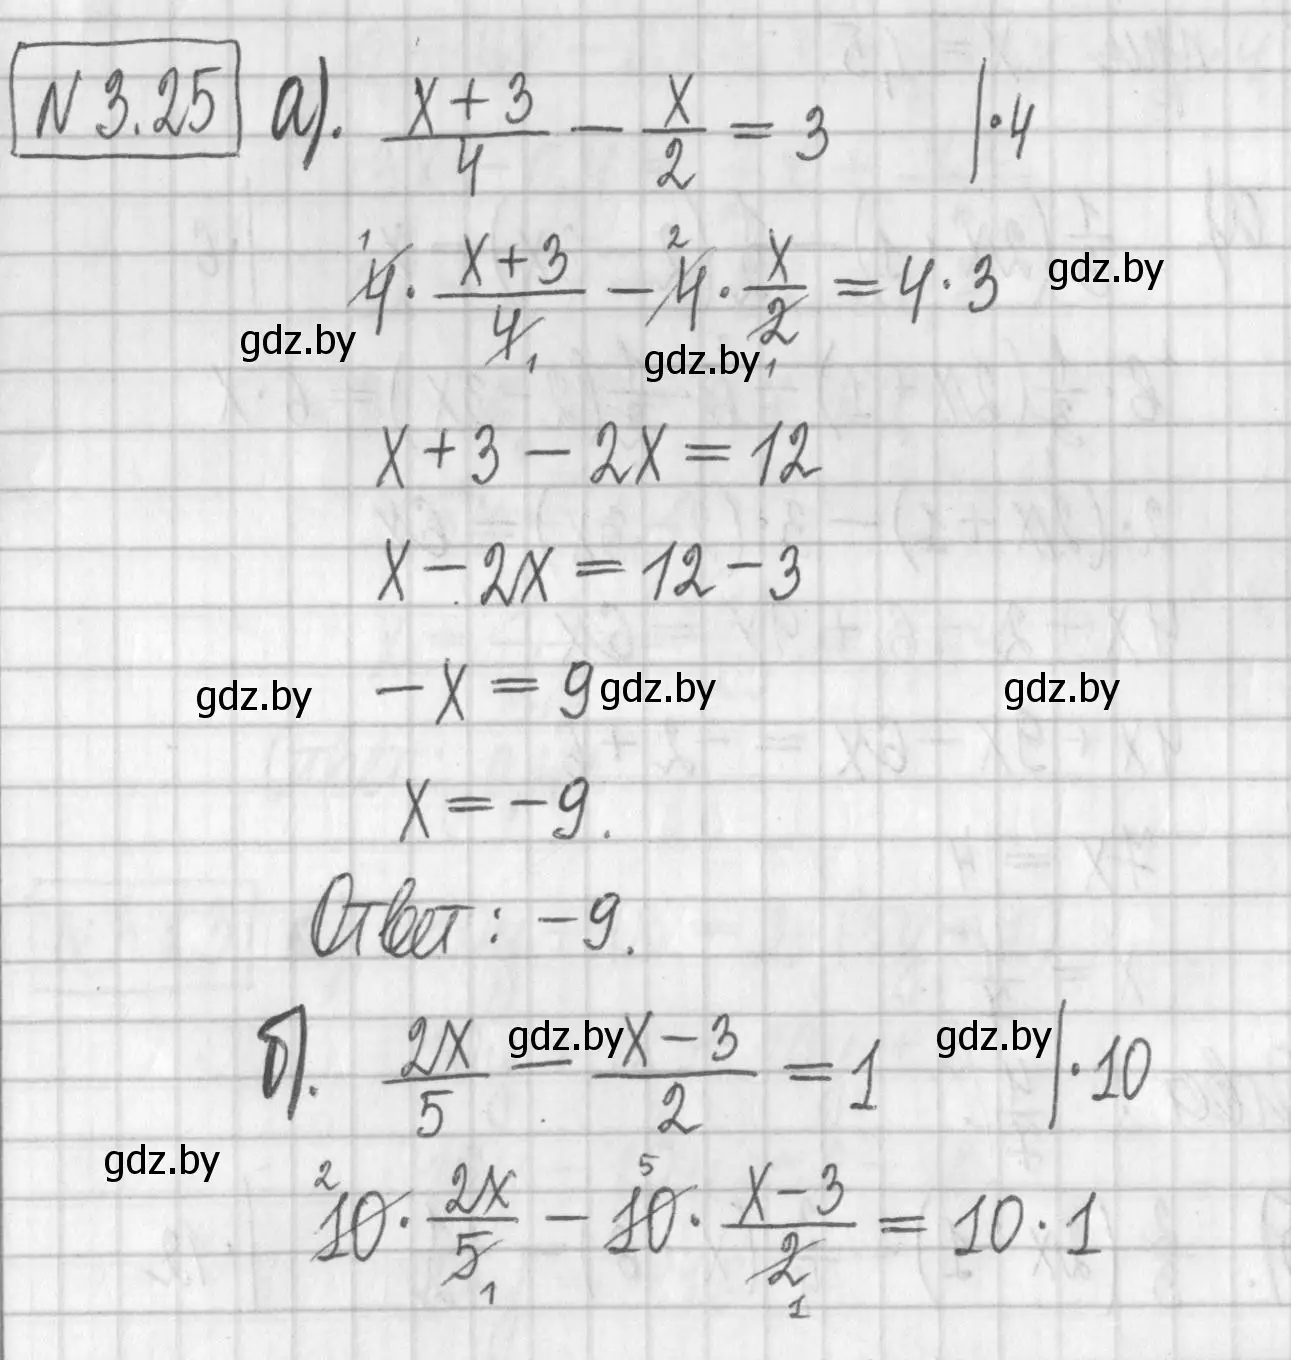 N 3.25 а). (x+3)/4 − x/2 = 3 |·4
4 · (x+3)/4 − 4 · x/2 = 4 · 3
gdz.by
gdz.by gdz.by
x + 3 − 2x = 12
x − 2x = 12 − 3
gdz.by −x = 9 gdz.by gdz.by
x = −9.
Ответ: −9.
б). 2x/5 − (x−3)/2 = 1 |·10
gdz.by gdz.by
gdz.by
10 · 2x/5 − 10 · (x−3)/2 = 10 · 1